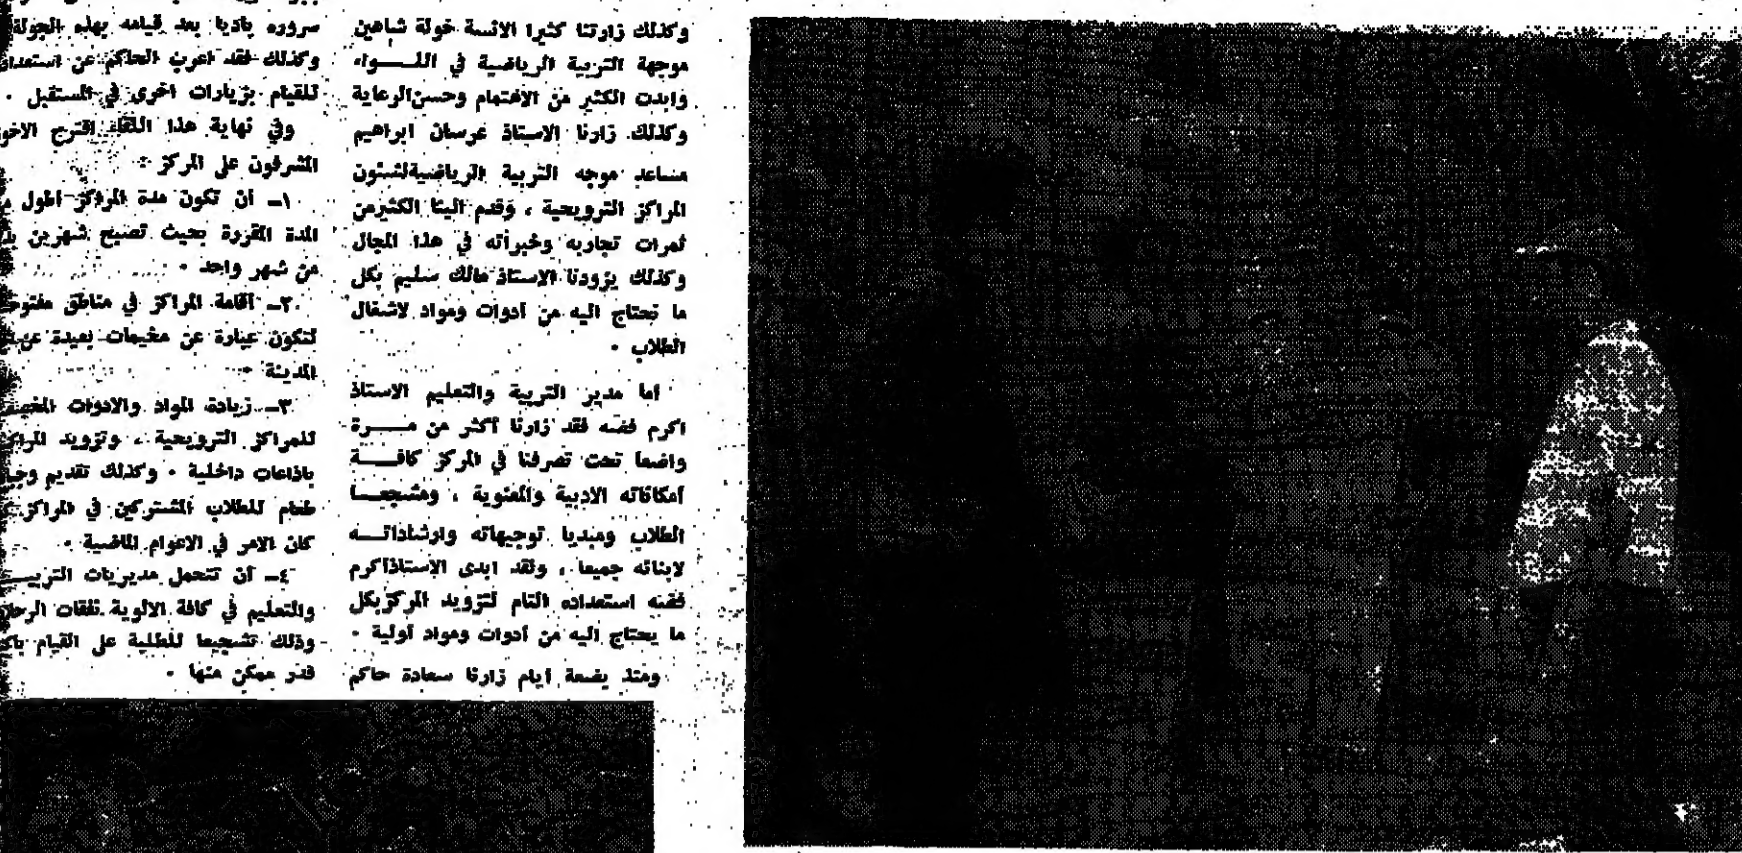 وكذلك زارتنا كثيرا الانسة خولة شاهين
موجهة التربية الرياضية في اللــــواء
وابدت الكثير من الاهتمام وحسن الرعاية
وكذلك زارنا الاستاذ عرسان ابراهيم
مساعد موجه التربية الرياضية لشئون
المراكز الترويحية ، وقدم الينا الكثير من
ثمرات تجاربه وخبراته في هذا المجال
وكذلك يزودنا الاستاذ مالك سليم بكل
ما نحتاج اليه من أدوات ومواد لاشغال
الطلاب .
أما مدير التربية والتعليم الاستاذ
اكرم فضه فقد زارنا أكثر من مـــــرة
واضعا تحت تصرفنا في المركز كافـــــة
أمكاناته الادبية والمعنوية ، ومشجعـــا
الطلاب ومبديا توجيهاته وارشاداتـــه
لابنائه جميعا ، ولقد ابدى الاستاذ اكرم
فضه استعداده التام لتزويد المركز بكل
ما يحتاج اليه من أدوات ومواد أولية .
ومنذ بضعة أيام زارنا سعادة حاكم
سروره باديا بعد قيامه بهذه الجولة
وكذلك فقد اعرب الحاكم عن
للقيام بزيارات اخرى في المستقبل .
وفي نهاية هذا اللقاء اقترح
المشرفون على المركز :
١ـ أن تكون مدة المراكز اطول
المدة المقررة بحيث تصبح شهرين
من شهر واحد .
٢ـ أقامة المراكز في مناطق
لتكون عبارة عن مخيمات بعيدة عن
المدينة .
٣ـ زيادة المواد والادوات
للمراكز الترويحية ، وتزويد
باذاعات داخلية . وكذلك تقديم
طعام للطلاب المشتركين في المراكز
كان الامر في الاعوام الماضية .
٤ـ أن تتحمل مديريات
والتعليم في كافة الالوية نفقات
وذلك تشجيعا للطلبة على القيام
قدر ممكن منها .